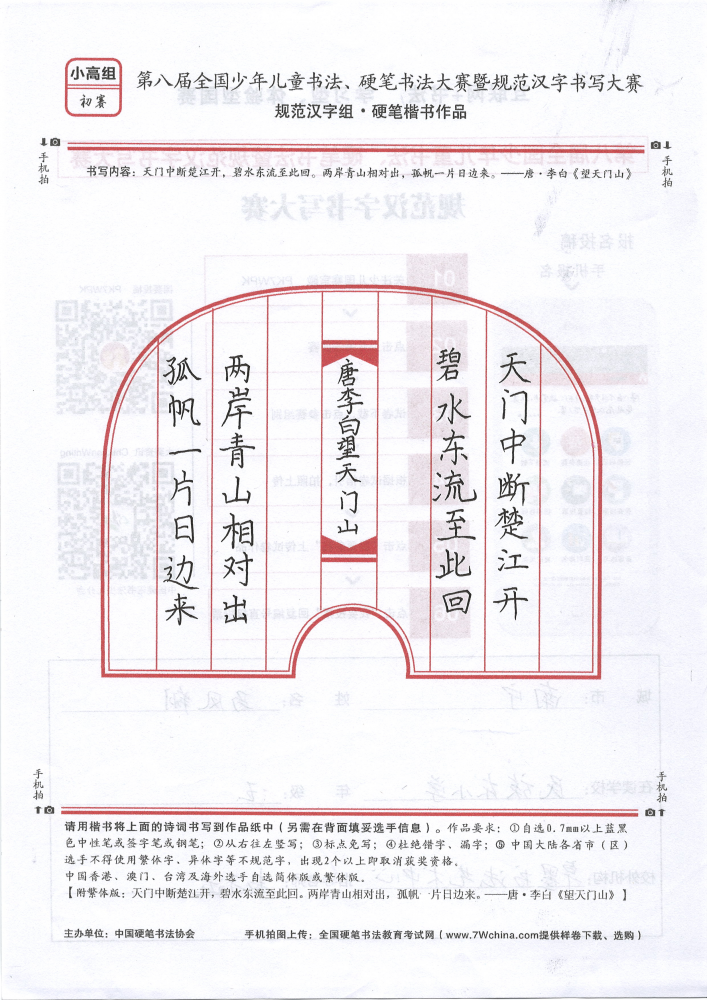 小高组
初赛
第八届全国少年儿童书法、硬笔书法大赛暨规范汉字书写大赛
规范汉字组·硬笔楷书作品
手机拍
手机拍
书写内容：天门中断楚江开，碧水东流至此回。两岸青山相对出，孤帆一片日边来。——唐·李白《望天门山》
天门中断楚江开
碧水东流至此回
唐李白望天门山
两岸青山相对出
孤帆一片日边来
手机拍
手机拍
请用楷书将上面的诗词书写到作品纸中（另需在背面填妥选手信息）。作品要求：①自选0.7mm以上蓝黑
色中性笔或签字笔或钢笔；②从右往左竖写；③标点免写；④杜绝错字、漏字；⑤中国大陆各省市（区）
选手不得使用繁体字、异体字等不规范字，出现2个以上即取消获奖资格。
中国香港、澳门、台湾及海外选手自选简体版或繁体版。
【附繁体版：天门中断楚江开，碧水东流至此回。两岸青山相对出，孤帆一片日边来。——唐·李白《望天门山》】
主办单位：中国硬笔书法协会 手机拍图上传：全国硬笔书法教育考试网（www.7Wchina.com提供样卷下载、选购）